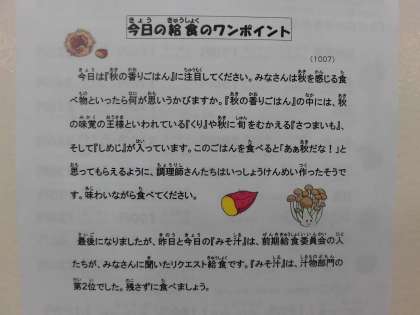 今日の給食のワンポイント
(1007)
今日は『秋の香りごはん』に注目してください。みなさんは秋を感じる食
べ物といったら何が思いうかびますか。『秋の香りごはん』の中には、秋
の味覚の王様といわれている『くり』や秋に旬をむかえる『さつまいも』、
そして『しめじ』が入っています。このごはんを食べると「あぁ秋だな！」と
思ってもらえるように、調理師さんたちはいっしょうけんめい作ったそうで
す。味わいながら食べてください。
最後になりましたが、昨日と今日の『みそ汁』は、前期給食委員会の人
たちが、みなさんに聞いたリクエスト給食です。『みそ汁』は、汁物部門の
第2位でした。残さずに食べましょう。